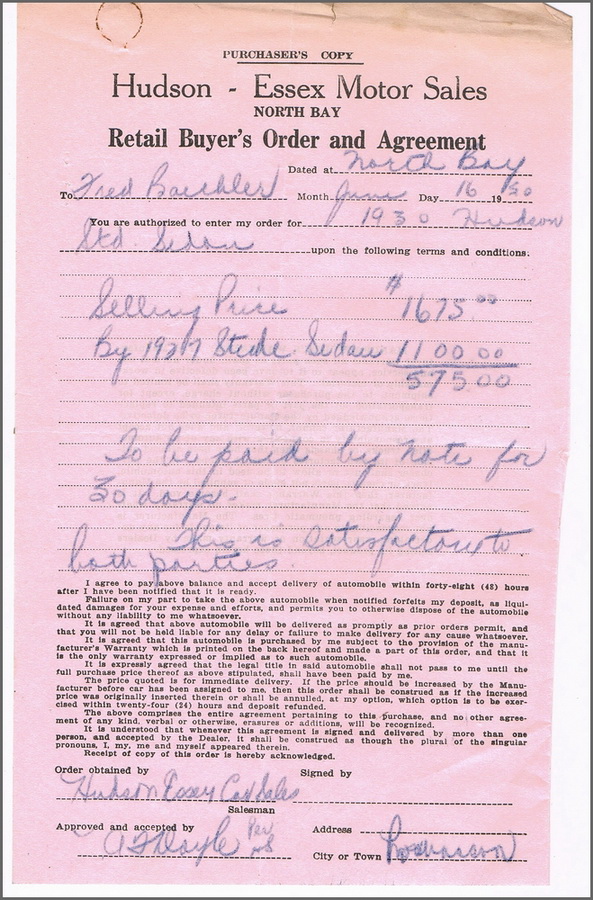 PURCHASER'S COPY
Hudson - Essex Motor Sales
NORTH BAY
Retail Buyer's Order and Agreement
Dated at North Bay
To Fred Baechler Month June Day 16 1930
You are authorized to enter my order for 1930 Hudson
Std Sedan upon the following terms and conditions:
Selling Price $ 1675 00
By 1927 Stude Sedan 1100 00
575 00
To be paid by note for
30 days.
This is satisfactory to
both parties.
I agree to pay above balance and accept delivery of automobile within forty-eight (48) hours
after I have been notified that it is ready.
Failure on my part to take the above automobile when notified forfeits my deposit, as liqui-
dated damages for your expense and efforts, and permits you to otherwise dispose of the automobile
without any liability to me whatsoever.
It is agreed that above automobile will be delivered as promptly as prior orders permit, and
that you will not be held liable for any delay or failure to make delivery for any cause whatsoever.
It is agreed that this automobile is purchased by me subject to the provision of the manu-
facturer's Warranty which is printed on the back hereof and made a part of this order, and that it
is the only warranty expressed or implied as to such automobile.
It is expressly agreed that the legal title in said automobile shall not pass to me until the
full purchase price thereof as above stipulated, shall have been paid by me.
The price quoted is for immediate delivery. If the price should be increased by the Manu-
facturer before car has been assigned to me, then this order shall be construed as if the increased
price was originally inserted therein or shall be annulled, at my option, which option is to be exer-
cised within twenty-four (24) hours and deposit refunded.
The above comprises the entire agreement pertaining to this purchase, and no other agree-
ment of any kind, verbal or otherwise, erasures or additions, will be recognized.
It is understood that whenever this agreement is signed and delivered by more than one
person, and accepted by the Dealer, it shall be construed as though the plural of the singular
pronouns, I, my, me and myself appeared therein.
Receipt of copy of this order is hereby acknowledged.
Order obtained by Signed by
Hudson Essex Car Sales
Salesman
Approved and accepted by Address
Doyle Per
City or Town